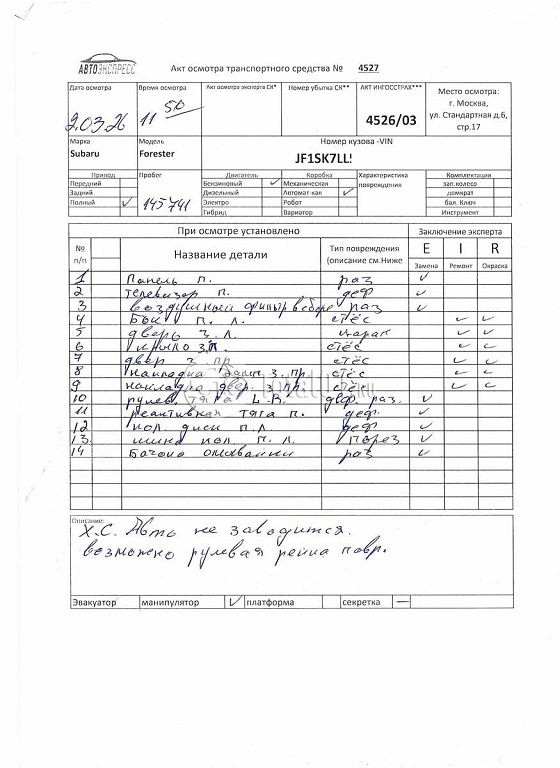 АВТОЭКСПРЕСС
Акт осмотра транспортного средства № 4527
Дата осмотра Время осмотра Акт осмотра эксперта СК* Номер убытка СК** АКТ ИНГОССТРАХ*** Место осмотра:
г. Москва,
ул. Стандартная д.6,
стр.17
2.03.26 11 50 4526/03
Марка Модель Номер кузова -VIN
Subaru Forester JF1SK7LL!
Привод Пробег Двигатель Коробка Характеристика повреждения Комплектация
Передний Бензиновый ✓ Механическая зап.колесо
Задний Дизельный Автомат-кая ✓ домкрат
Полный ✓ 145741 Электро Робот бал. Ключ
Гибрид Вариатор Инструмент
При осмотре установлено Заключение эксперта
№ п/п Название детали Тип повреждения (описание см.Ниже E I R
Замена Ремонт Окраска
1 Панель п. раз ✓
2 телевизор п. деф ✓
3 воздушный фильтр в сборе раз ✓
4 Бок п. л. стёс ✓ ✓
5 дверь з. л. царап ✓ ✓
6 крыло з.п. стёс ✓ ✓
7 двер з. пр стёс ✓ ✓
8 накладка з. пр. стёс ✓ ✓
9 накладка двер. з пр. стёс ✓ ✓
10 рулев. тяга L.R. деф. раз. ✓
11 реактивная тяга п. деф. ✓
12 кол. диск п.л. деф ✓
13. шина кол. п. л. порез ✓
14 Бачок омывайки раз ✓
Описание:
Х.С. Авто не заводится.
возможно рулевая рейка повр.
Эвакуатор манипулятор ✓ платформа секретка —